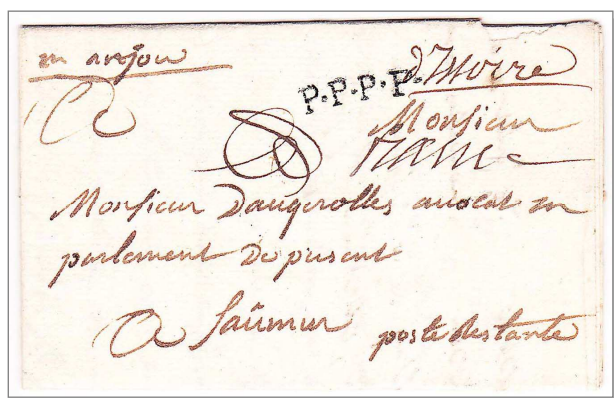 en anjou
P.P.P.P.
d'Issoire
Monsieur
franc
Monsieur Daugerolles avocat en
parlement De present
A Saûmur
poste restante